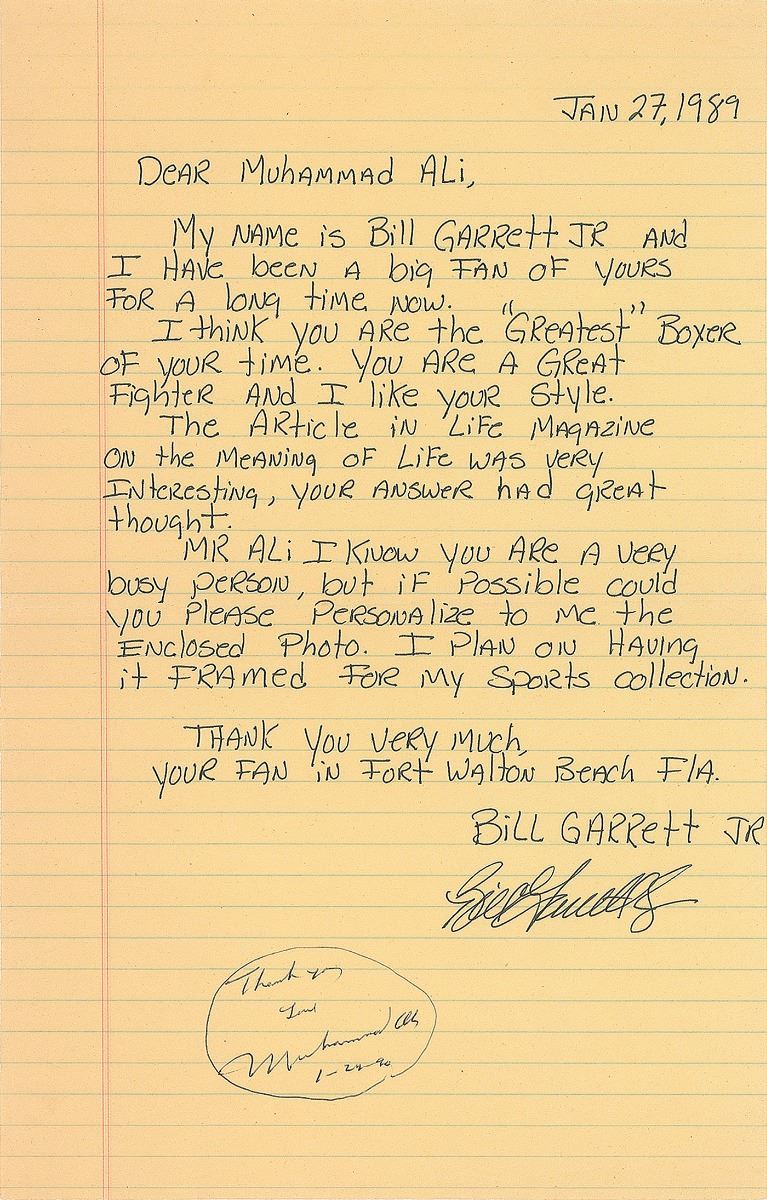 JAN 27, 1989
DEAR Muhammad ALi,
My NAME is Bill GARRett JR AND
I HAVE been A big FAN OF YOURS
FOR A long time NOW.
I think you ARE the "GREATest" Boxer
OF YOUR time. YOU ARE A GREAt
Fighter AND I like YOUR Style.
The ARticle iN LiFE MAGAZINE
ON the MEANing OF LiFE WAS VERy
INteresting, YOUR ANSWER had gREAt
thought.
MR ALi I KNOW YOU ARE A VERy
busy PERSON, but iF Possible could
YOU PlEASE PERSONAlize to ME the
ENclosed Photo. I PlAN ON HAVing
it FRAMed FOR My Sports collection.
THANK YOU VERy Much,
YOUR FAN iN FORt WALTON BEACH FlA.
BiLL GARRett JR
Bill Garrett Jr
Thank you
Love
Muhammad Ali
1-24-90